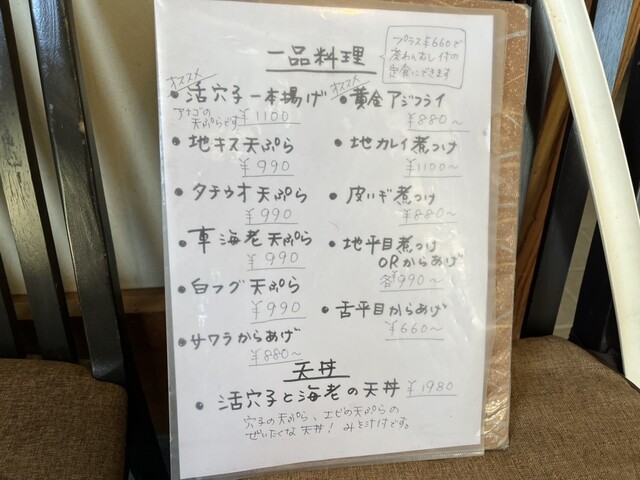 一品料理
プラス¥660で
茶わんむし付の
定食にできます
オススメ
・活穴子一本揚げ
アナゴの
天ぷらです
¥1100
・地キス天ぷら
¥990
・タチウオ天ぷら
¥990
・車海老天ぷら
¥990
・白フグ天ぷら
¥990
・サワラからあげ
¥880~
オススメ
・黄金アジフライ
¥880~
・地カレイ煮つけ
¥1100~
・皮ハギ煮つけ
¥880~
・地平目煮つけ
ORからあげ
各¥990~
・舌平目からあげ
¥660~
天丼
・活穴子と海老の天丼 ¥1980
穴子の天ぷら、エビの天ぷらの
ぜいたくな天丼! みそ汁付です。